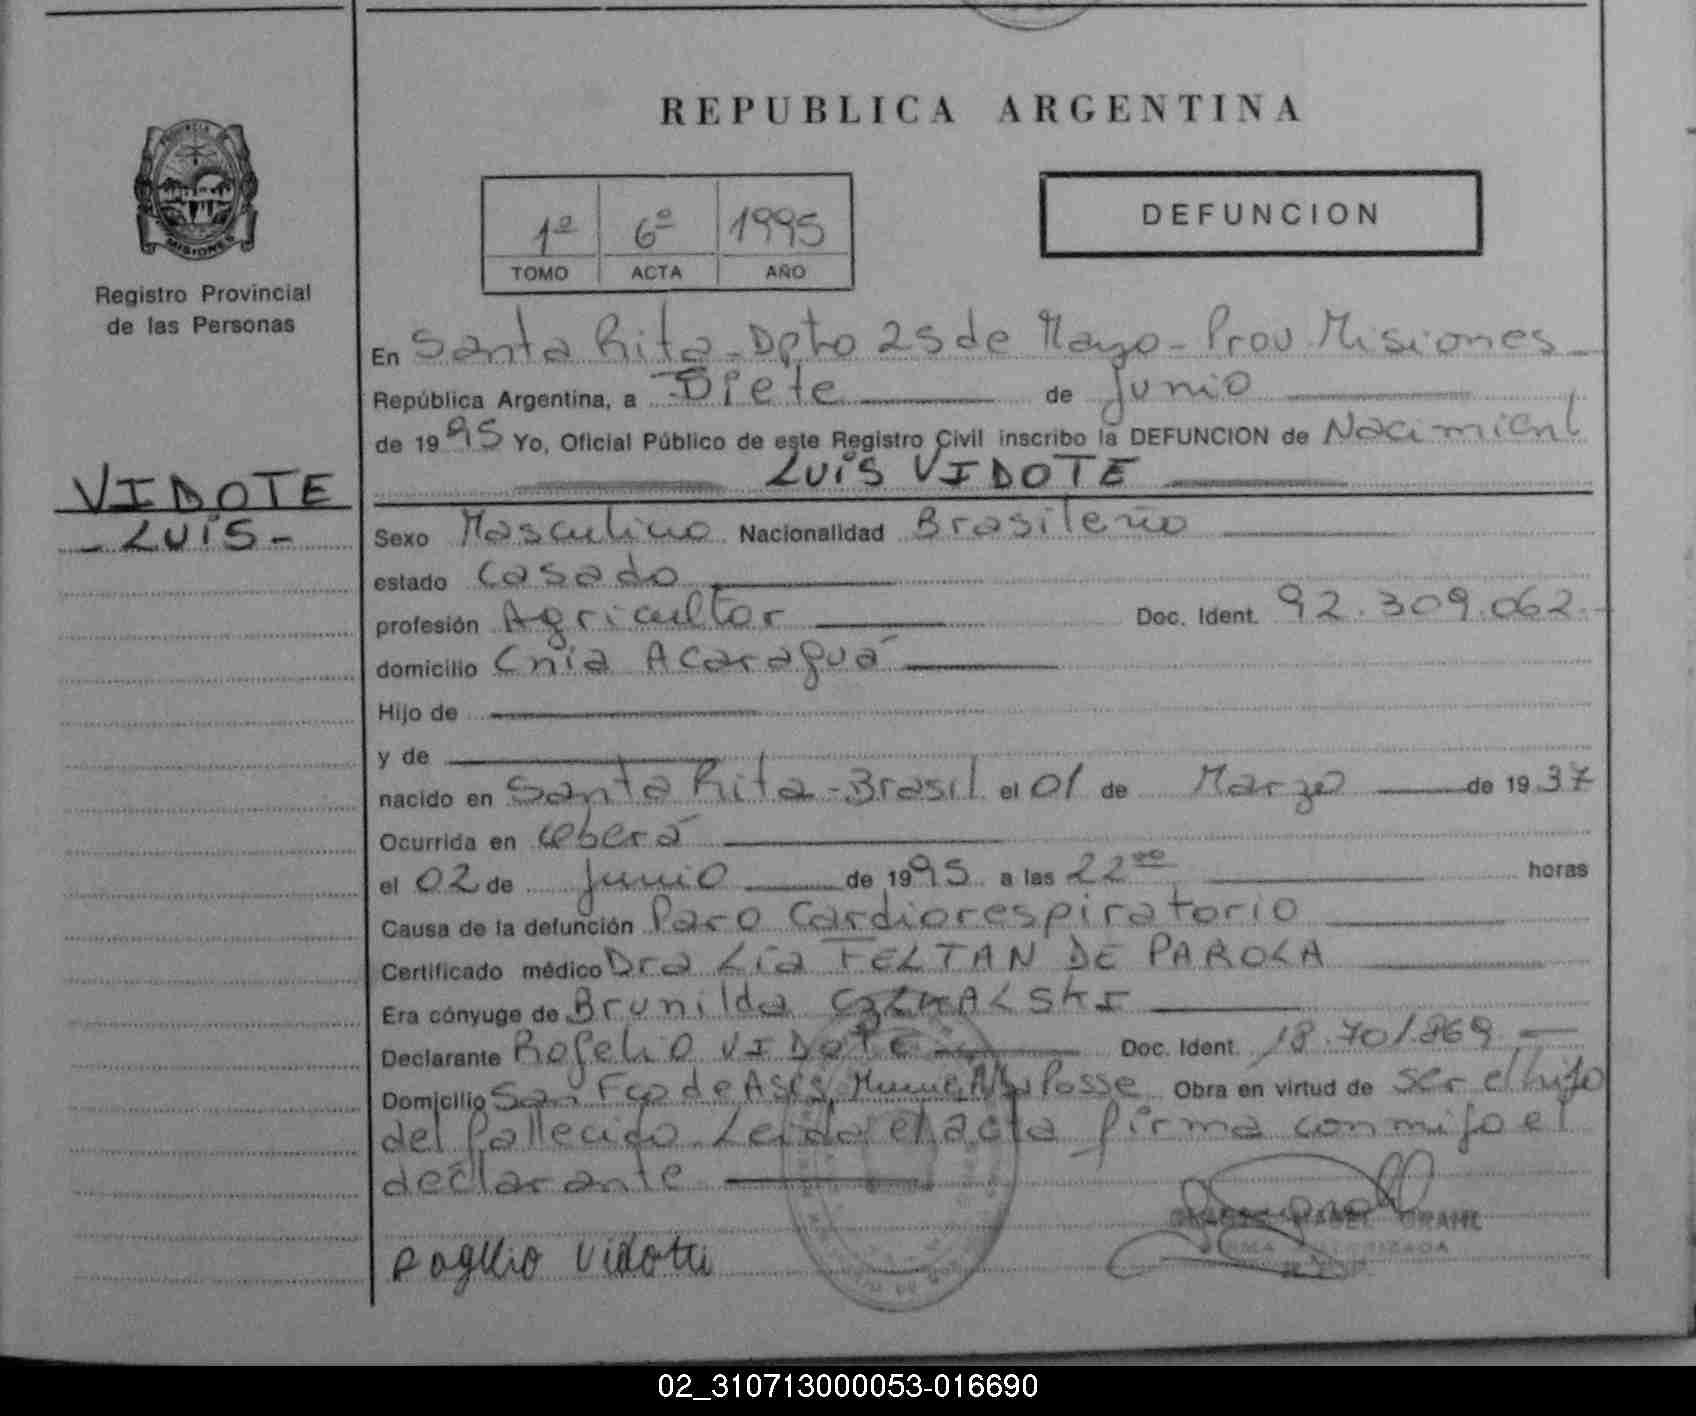 REPUBLICA ARGENTINA
PROVINCIA DE
MISIONES
Registro Provincial
de las Personas
1º 6º 1995
TOMO ACTA AÑO
DEFUNCION
En Santa Rita - Dpto 25 de Mayo - Prov Misiones
República Argentina, a Siete de Junio
de 1995 Yo, Oficial Público de este Registro Civil inscribo la DEFUNCION de
LUIS VIDOTE
VIDOTE
- LUIS -
Sexo Masculino Nacionalidad Brasileño
estado Casado
profesión Agricultor Doc. Ident. 92.309.062.-
domicilio Cnia Acaraguá
Hijo de
y de
nacido en Santa Rita - Brasil el 01 de Marzo de 1937
Ocurrida en Oberá
el 02 de Junio de 1995 a las 22 00 horas
Causa de la defunción Paro Cardiorespiratorio
Certificado médico Dra Lia FELTAN DE PAROLA
Era cónyuge de Brunilda
Declarante Rogelio VIDOTE Doc. Ident. 18.701.869 -
Domicilio San Fco de Asis Posse Obra en virtud de ser el hijo
del fallecido Leida el acta firma conmigo el
declarante
Rogelio Vidote
MABEL GRAHL
FIRMA AUTORIZADA
02_310713000053-016690